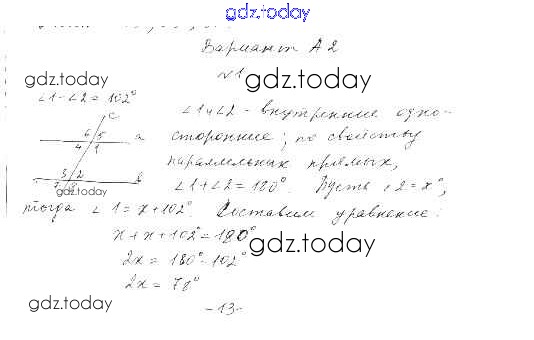 gdz.today
Вариант А2
№1
gdz.today
gdz.today
∠1-∠2=102°
c
∠1 и ∠2 - внутренние одно-
6 5
a
сторонние; по свойству
4 1
параллельных прямых,
3 2
в
gdz.today
∠1+∠2=180°. Пусть ∠2=x°,
тогда ∠1=x+102°. Составим уравнение:
x+x+102°=180°
gdz.today
2x=180°-102°
gdz.today
2x=78°
-13-